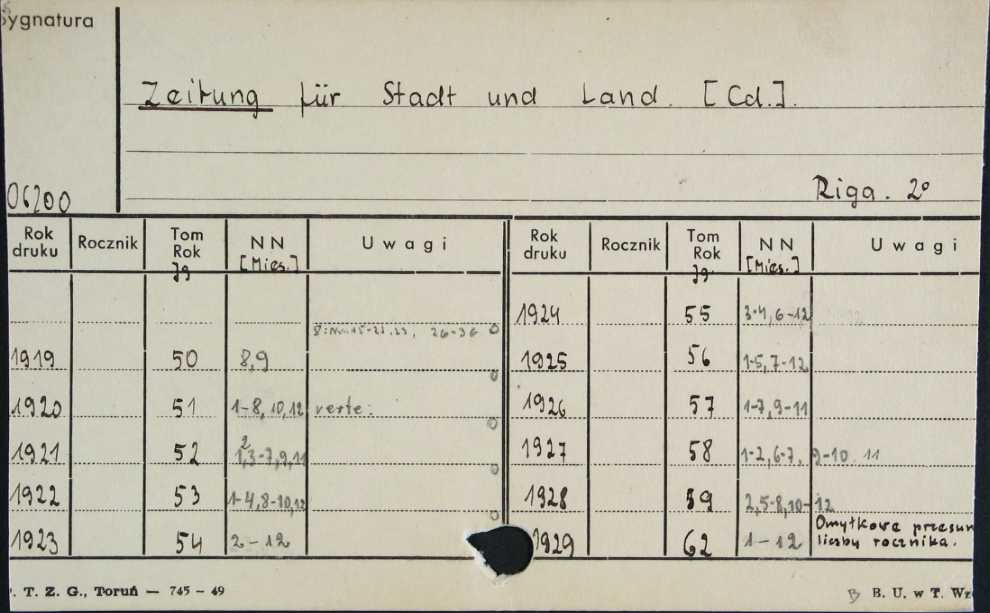 Sygnatura
Zeitung für Stadt und Land. [Cd.].
06200
Riga. 2°
Rok druku Rocznik Tom Rok Jg NN [Mies.] Uwagi Rok druku Rocznik Tom Rok Jg. NN [Mies.] Uwagi
1924 55 3-4, 6-12
1919 50 8,9 1925 56 1-5, 7-12
1920 51 1-8, 10, 12 verte: 1926 57 1-7, 9-11
1921 52 1,2,3-7,9,11 1927 58 1-2, 6-7, 9-10 11
1922 53 1-4,8-10,12 1928 59 2,5-8,10-12
1923 54 2-12 1929 62 1-12 Omyłkowe przesun liczby rocznika.
. T. Z. G., Toruń — 745 - 49
B B. U. w T. Wz